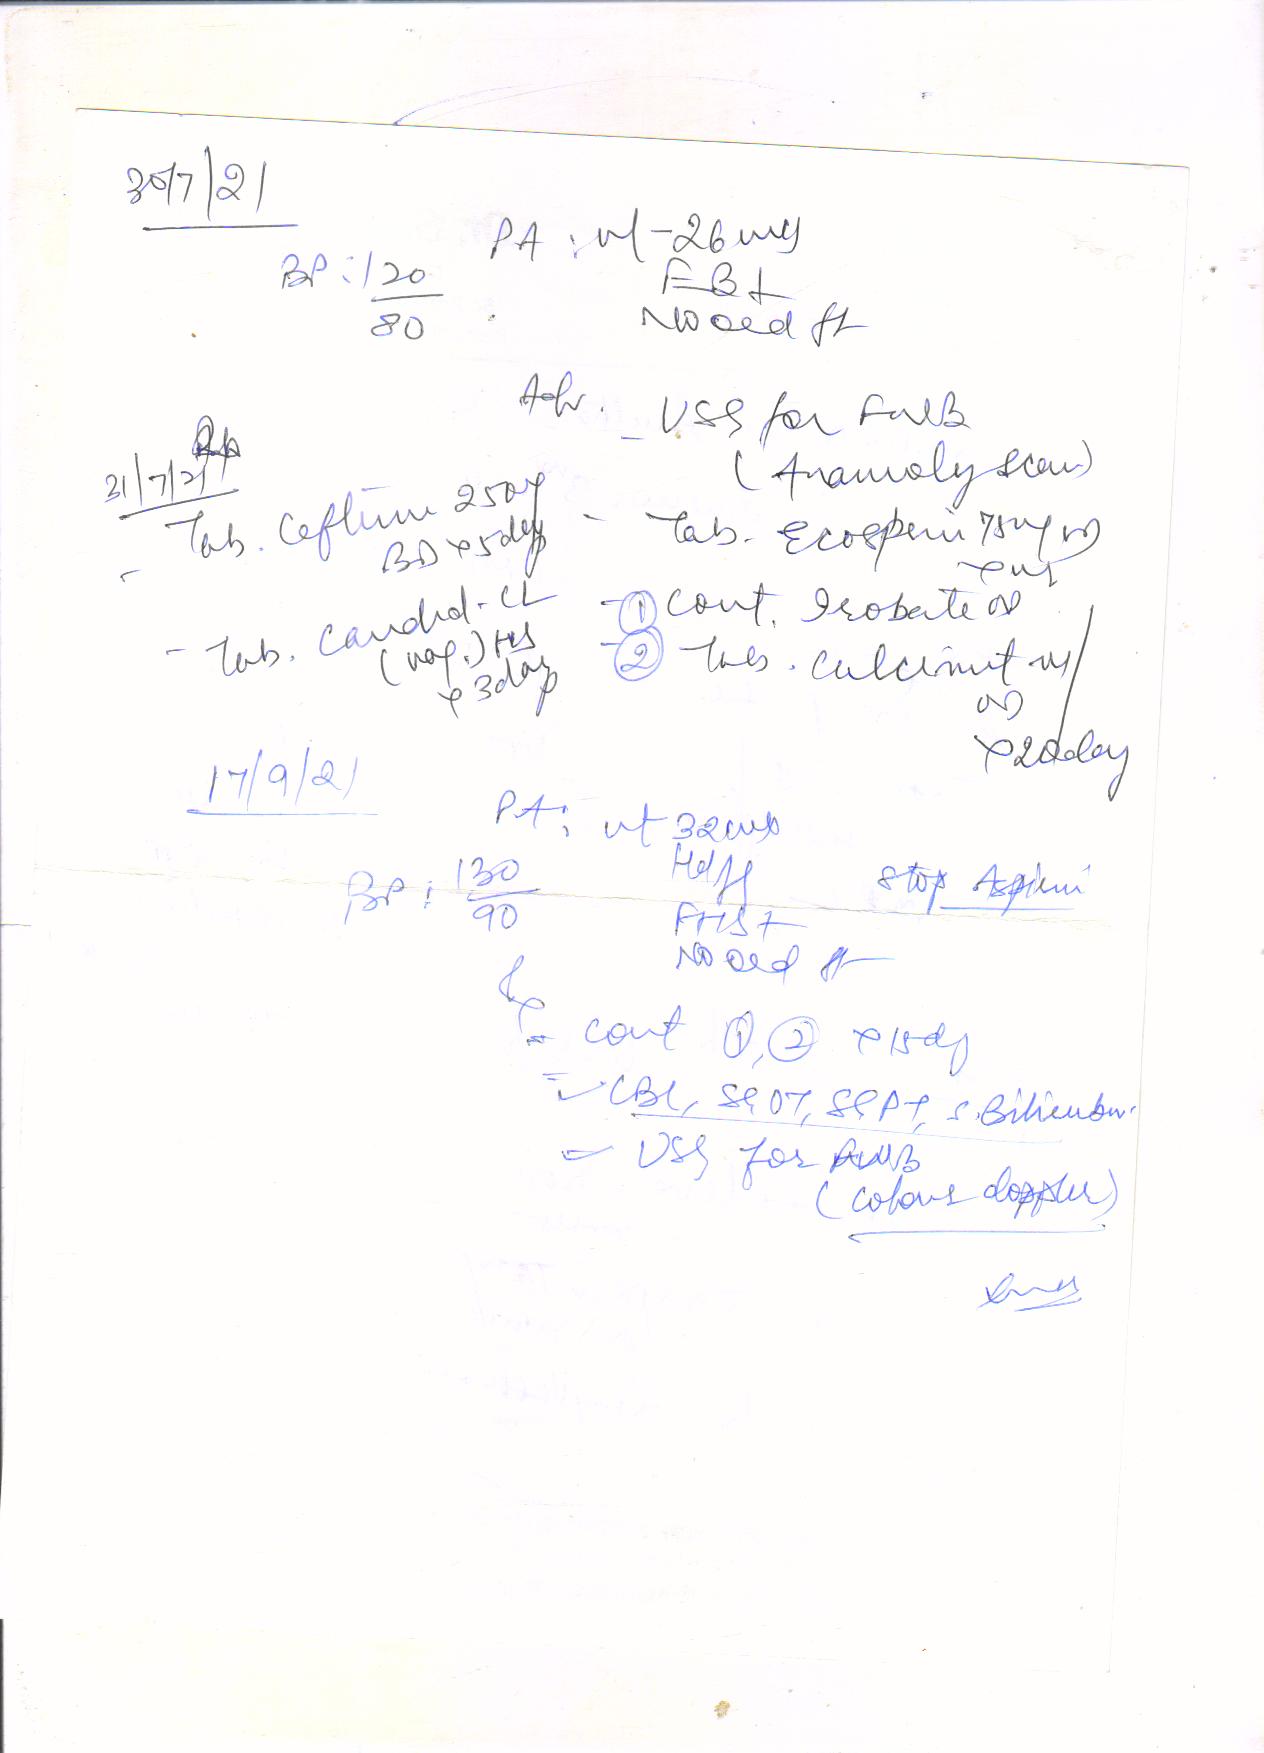 30/7/21
PA : ut - 26 wks
BP : 120/80
FB+
No oed ft
Adv. - USG for FWB
(Anamoly scan)
Rx
31/7/21
- Tab. Ceftum 250mg
BD x 5 day
- Tab. Candid-CL
(vag.) HS
x 3 day
- Tab. Ecosprin 75mg OD
- ① Cont. Irobate OD
- ② Tab. Calcimit
OD
x 20 day
17/9/21
PA : ut 32 wks
BP : 130/90
Stop Aspirin
FHS+
No oed ft
- Cont ①, ② x 15 day
- CBC, SGOT, SGPT, S. Bilirubin
- USG for FWB
(colour doppler)